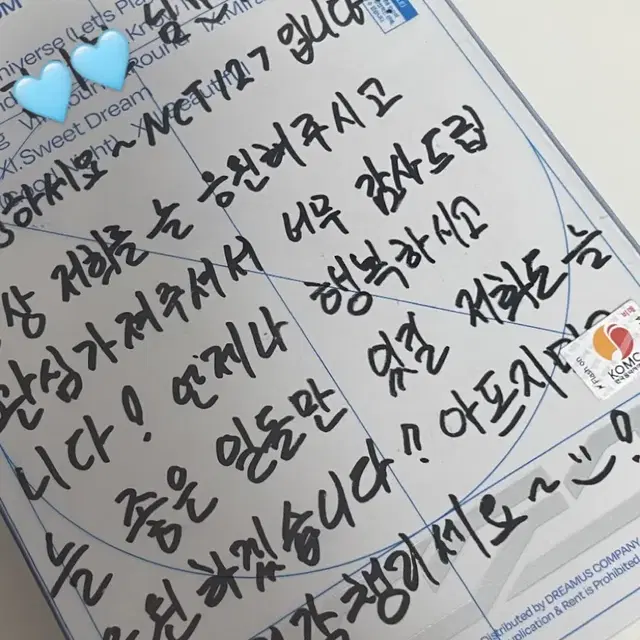 niverse (Let's Pla
Beautiful
Sweet Dream
하세요~ NCT 127 입니다
상 저희를 늘 응원해주시고
관심가져주셔서 너무 감사드립
니다! 언제나 행복하시고
늘 좋은 일들만 있길 저희도 늘
원 하겠습니다!! 아프지
강 챙기세요~ !
KOMC
istributed by DREAMUS COMPANY
plication & Rent is Prohibited